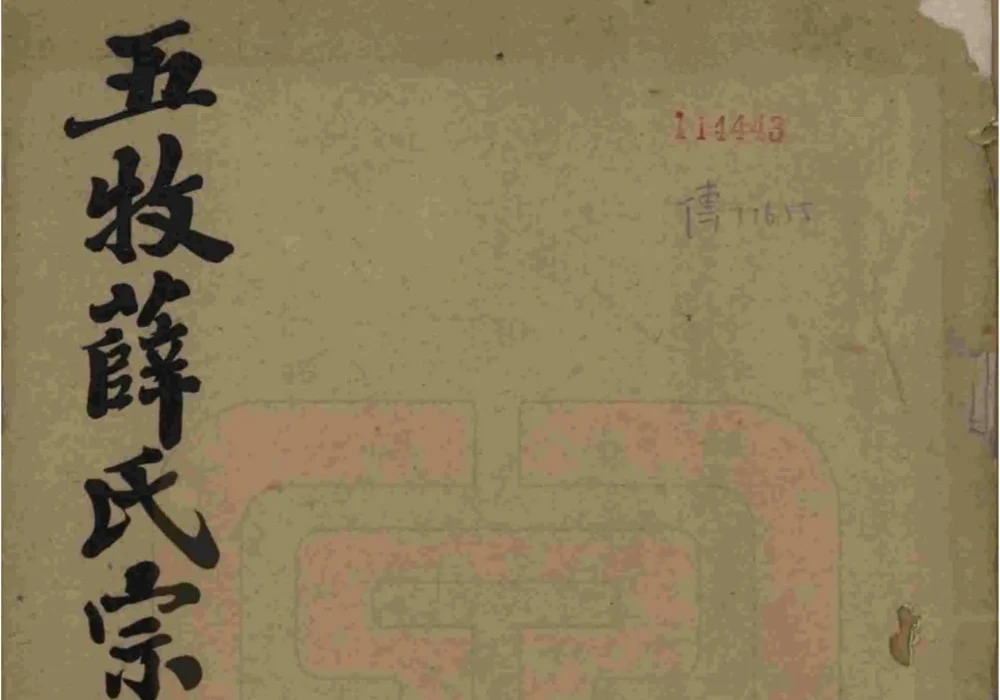 五牧薛氏宗
114443
傳